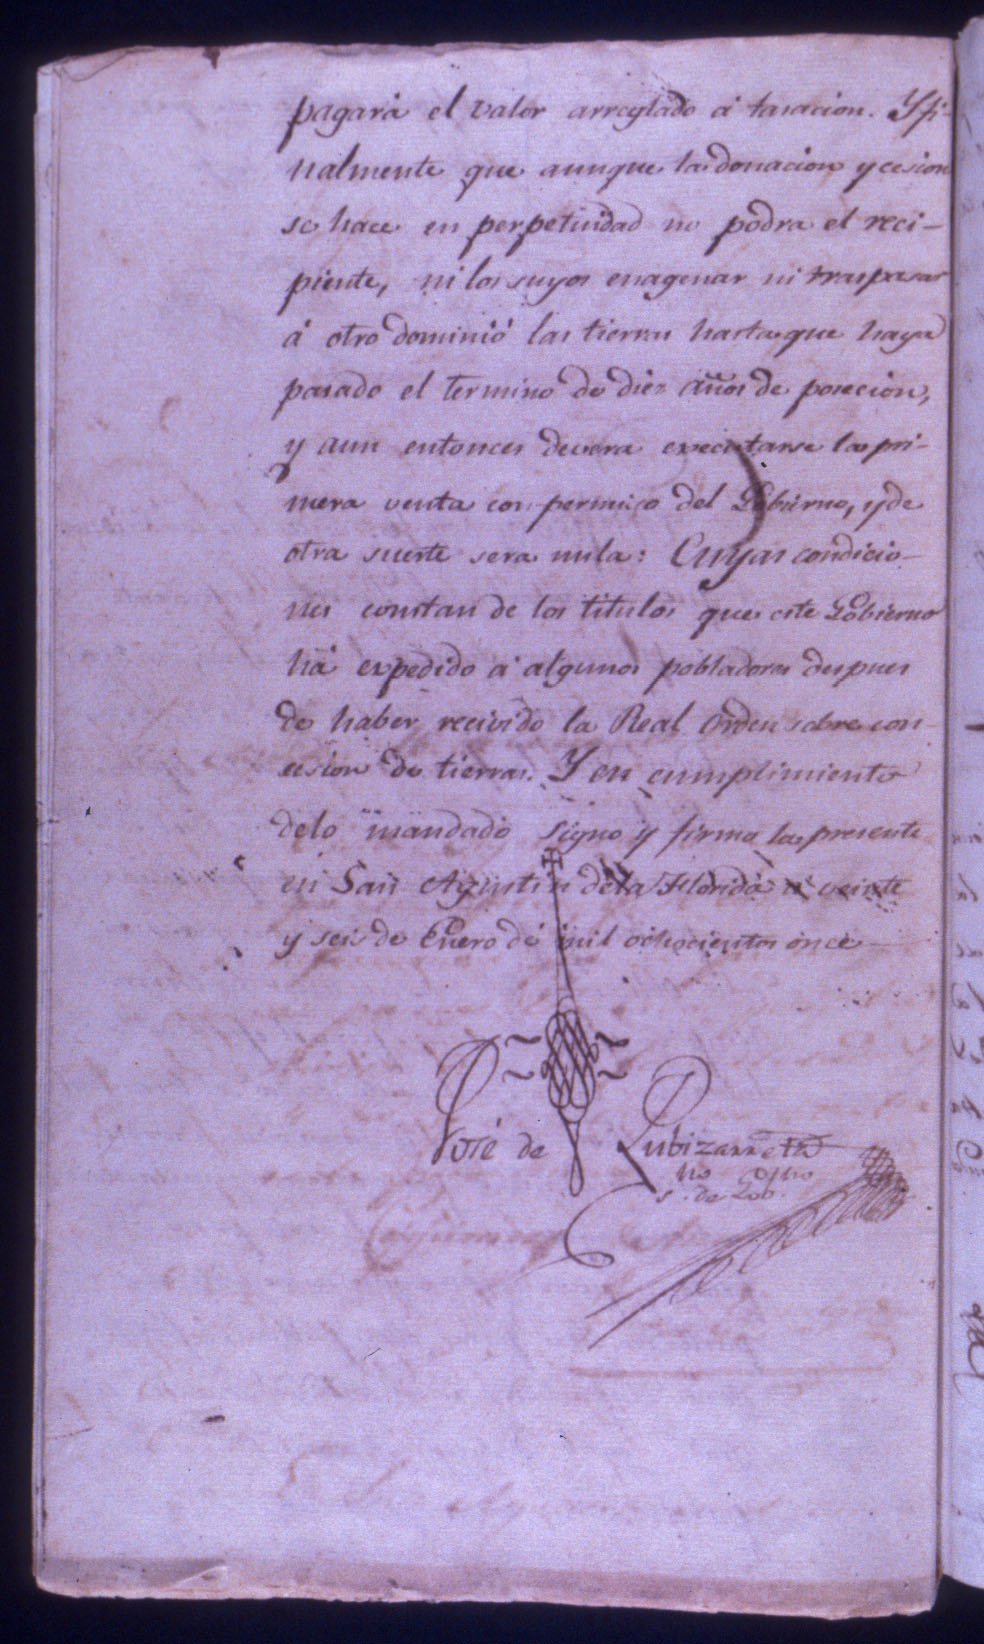 pagará el valor arreglado á tasacion. Y fi-
nalmente que aunque la donacion y cesion
se hace en perpetuidad no podra el reci-
piente, ni los suyos enagenar ni traspasar
á otro dominió las tierras hasta que haya
pasado el termino de diez años de posecion,
y aun entonces devera executarse la pri-
mera venta con permiso del Gobierno, y de
otra suerte sera nula: Cuyas condicio-
nes constan de los titulos que este Gobierno
há expedido á algunos pobladores despues
de haber recivido la Real Orden sobre con-
cesion de tierras. Y en cumplimiento
delo mandado signo y firmo la presente
en San Agustin dela Florida á veinte
y seis de Enero de mil ochocientos once
José de Zubizarreta
s.no de Gob.no